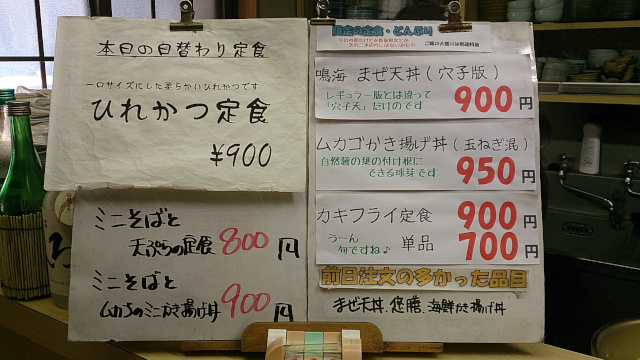 本日の日替わり定食
一口サイズにした柔らかいひれかつです
ひれかつ定食
¥900
ミニそばと
天ぷらの定食 800円
ミニそばと
ムカゴのミニかき揚げ丼 900円
限定の定食・どんぶり
鳴海 まぜ天丼(穴子版)
レギュラー版とは違って
「穴子天」だけのです
900円
ムカゴかき揚げ丼(玉ねぎ混)
自然薯の葉の付け根に
できる球芽です
950円
カキフライ定食 900円
う〜ん
旬ですね♪
単品 700円
前日注文の多かった品目
まぜ天丼、悠膳、海鮮かき揚げ丼